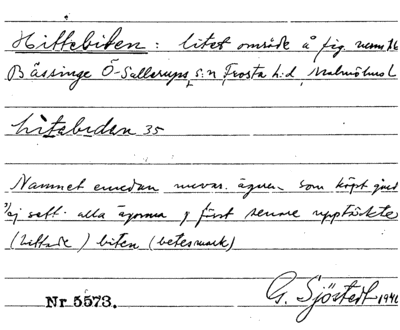 Hittebiten : litet område å fig. nem. 16
Bässinge Ö-Sallerups s:n Frosta h:d, Malmöhus l
hìtebidan 35
Namnet emedan nuvar. ägaren som köpt gård
ej sett alla ägorna o först senare upptäckte
(hittade) biten (betesmark)
Nr 5573. G. Sjöstedt 194